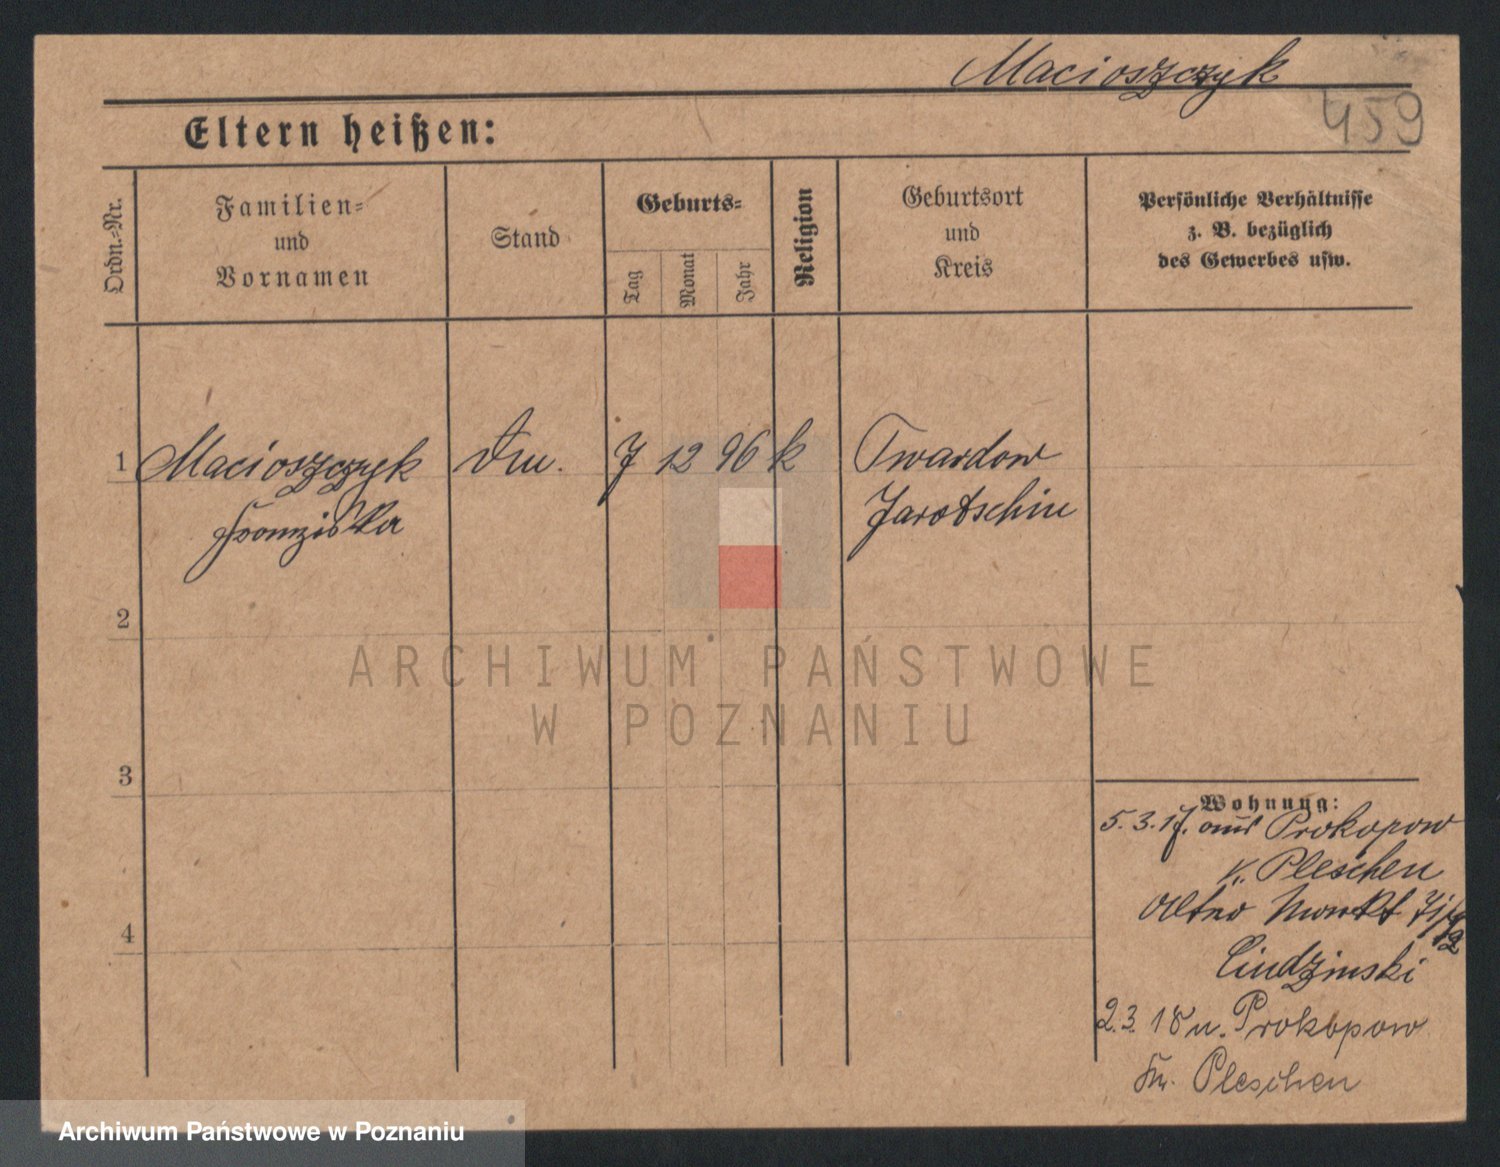 Macioszczyk
459
Eltern heißen:
Ordn.=Nr.
Familien=
und
Vornamen
Stand
Geburts=
Tag
Monat
Jahr
Religion
Geburtsort
und
Kreis
Persönliche Verhältnisse
z. B. bezüglich
des Gewerbes usw.
1 Macioszczyk 7 12 96 k Twardow
Franziska Jarotschin
2
ARCHIWUM PAŃSTWOWE
W POZNANIU
3
Wohnung:
5.3.17. aus Prokopow
Pleschen
Alter Markt
4
2.3.18 n. Prokopow
Kr. Pleschen
Archiwum Państwowe w Poznaniu